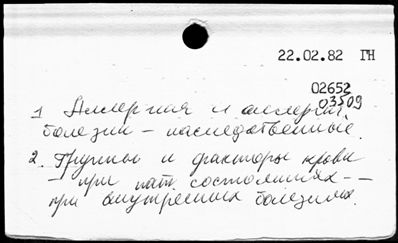 22.02.82 ГН
02652
03509
1 Аллергия и аллергич.
болезни - наследственные.
2. Группы и факторы крови
- при пат. состояниях -
при внутренних болезнях.